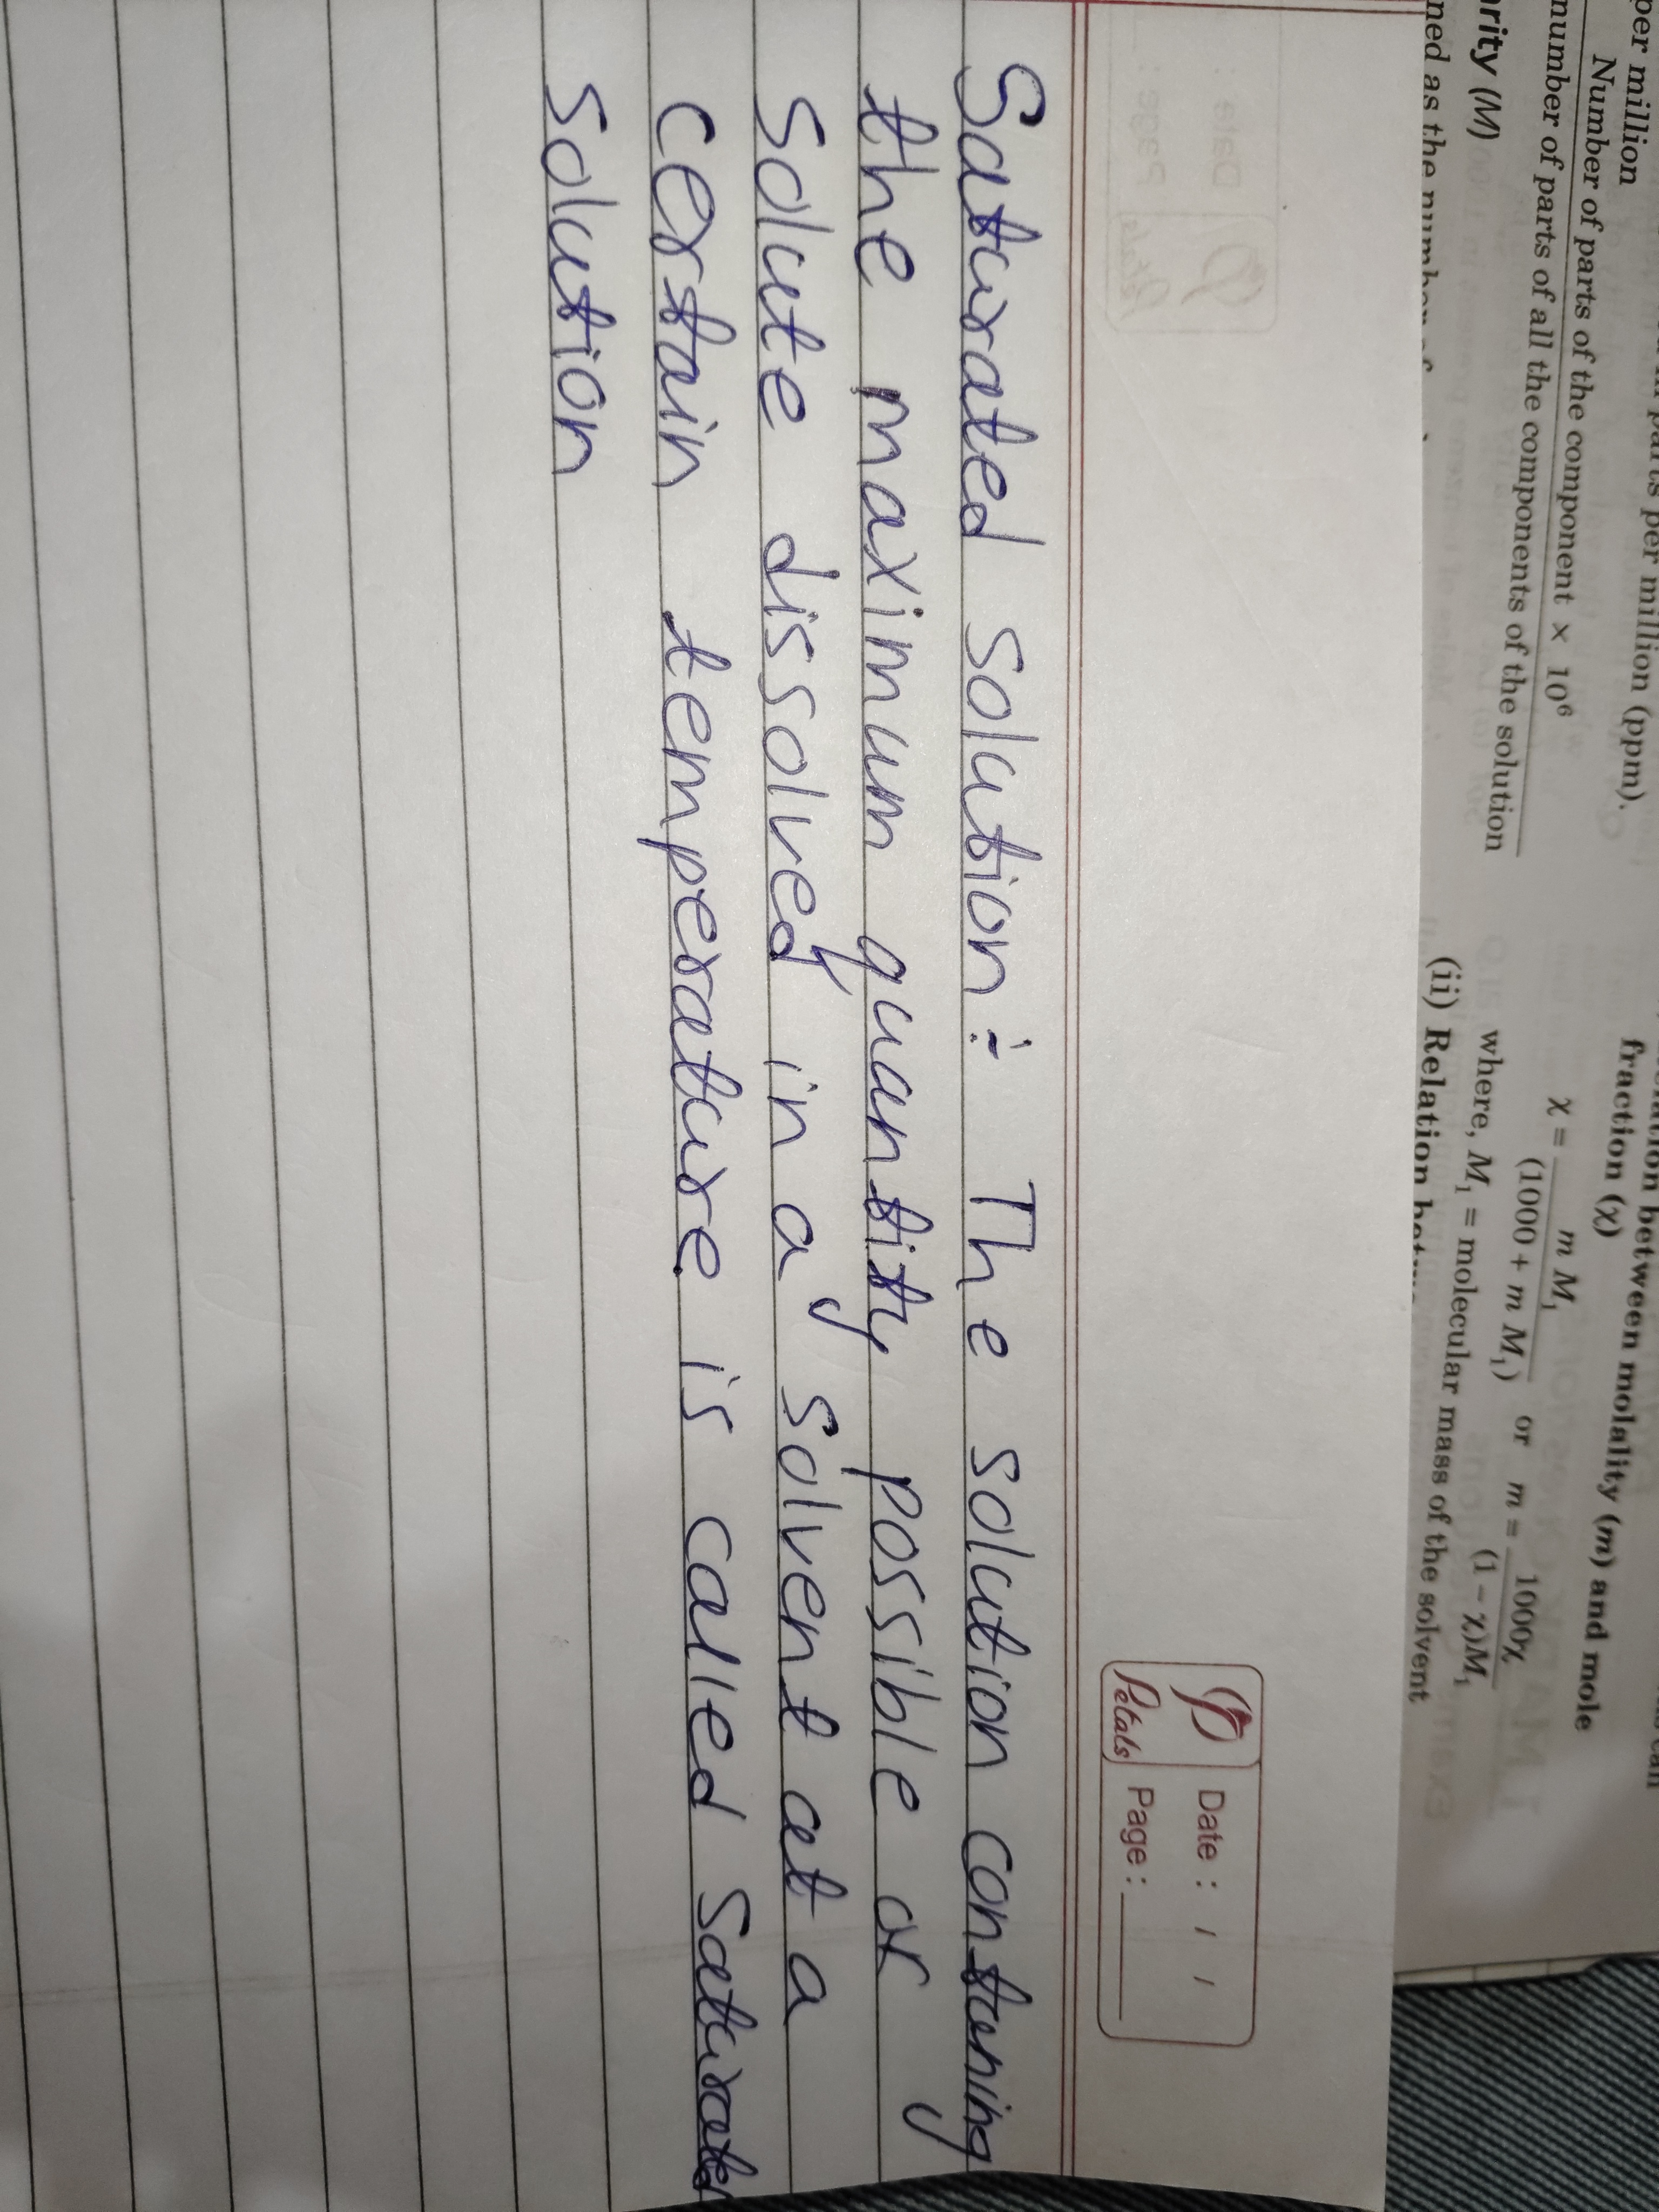 per million
Number of parts of the component × 10⁶
number of parts of all the components of the solution
parts per million (ppm).
arity (M)
ned as the number of
between molality (m) and mole
fraction (χ)
χ = m M₁ / (1000 + m M₁) or m = 1000χ / (1 − χ)M₁
where, M₁ = molecular mass of the solvent
(ii) Relation
Petals
Date : / /
Page :
Saturated solution: The solution contaning
the maximum quantity possible or
solute dissolved in a solvent at a
certain temperature is called Saturated
solution